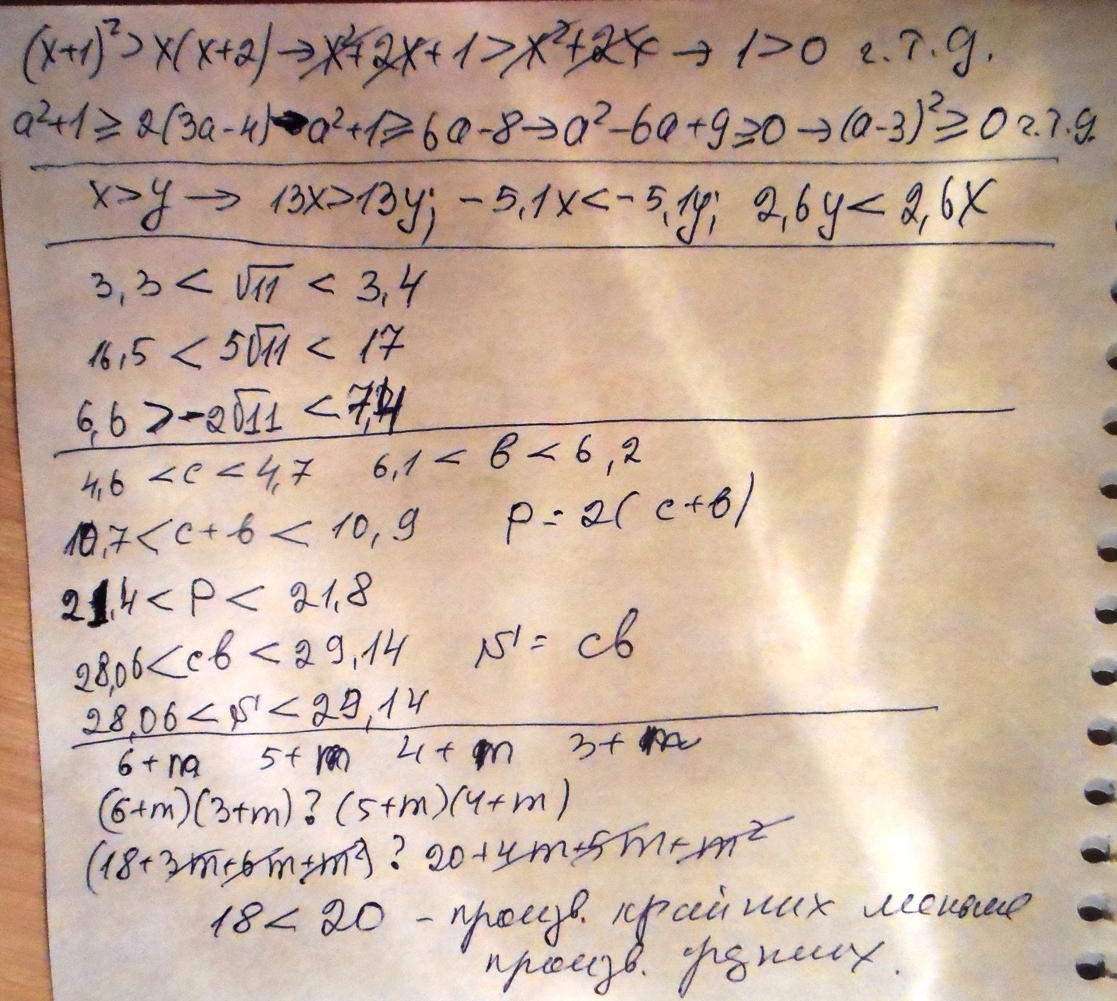 (x+1)²>x(x+2)→x²+2x+1>x²+2x→1>0 ч.т.д.
a²+1≥2(3a-4)→a²+1≥6a-8→a²-6a+9≥0→(a-3)²≥0 ч.т.д.
x>y → 13x>13y; -5,1x<-5,1y; 2,6y<2,6x
3,3 < √11 < 3,4
16,5 < 5√11 < 17
6,6 > -2√11 <
4,6 < c < 4,7 6,1 < в < 6,2
10,7 < c+в < 10,9 P = 2(c+в)
21,4 < P < 21,8
28,06 < cв < 29,14 S = cв
28,06 < S < 29,14
6+m 5+m 4+m 3+m
(6+m)(3+m) ? (5+m)(4+m)
(18+3m+6m+m²) ? 20+4m+5m+m²
18 < 20 - произв. крайних меньше
произв. средних.